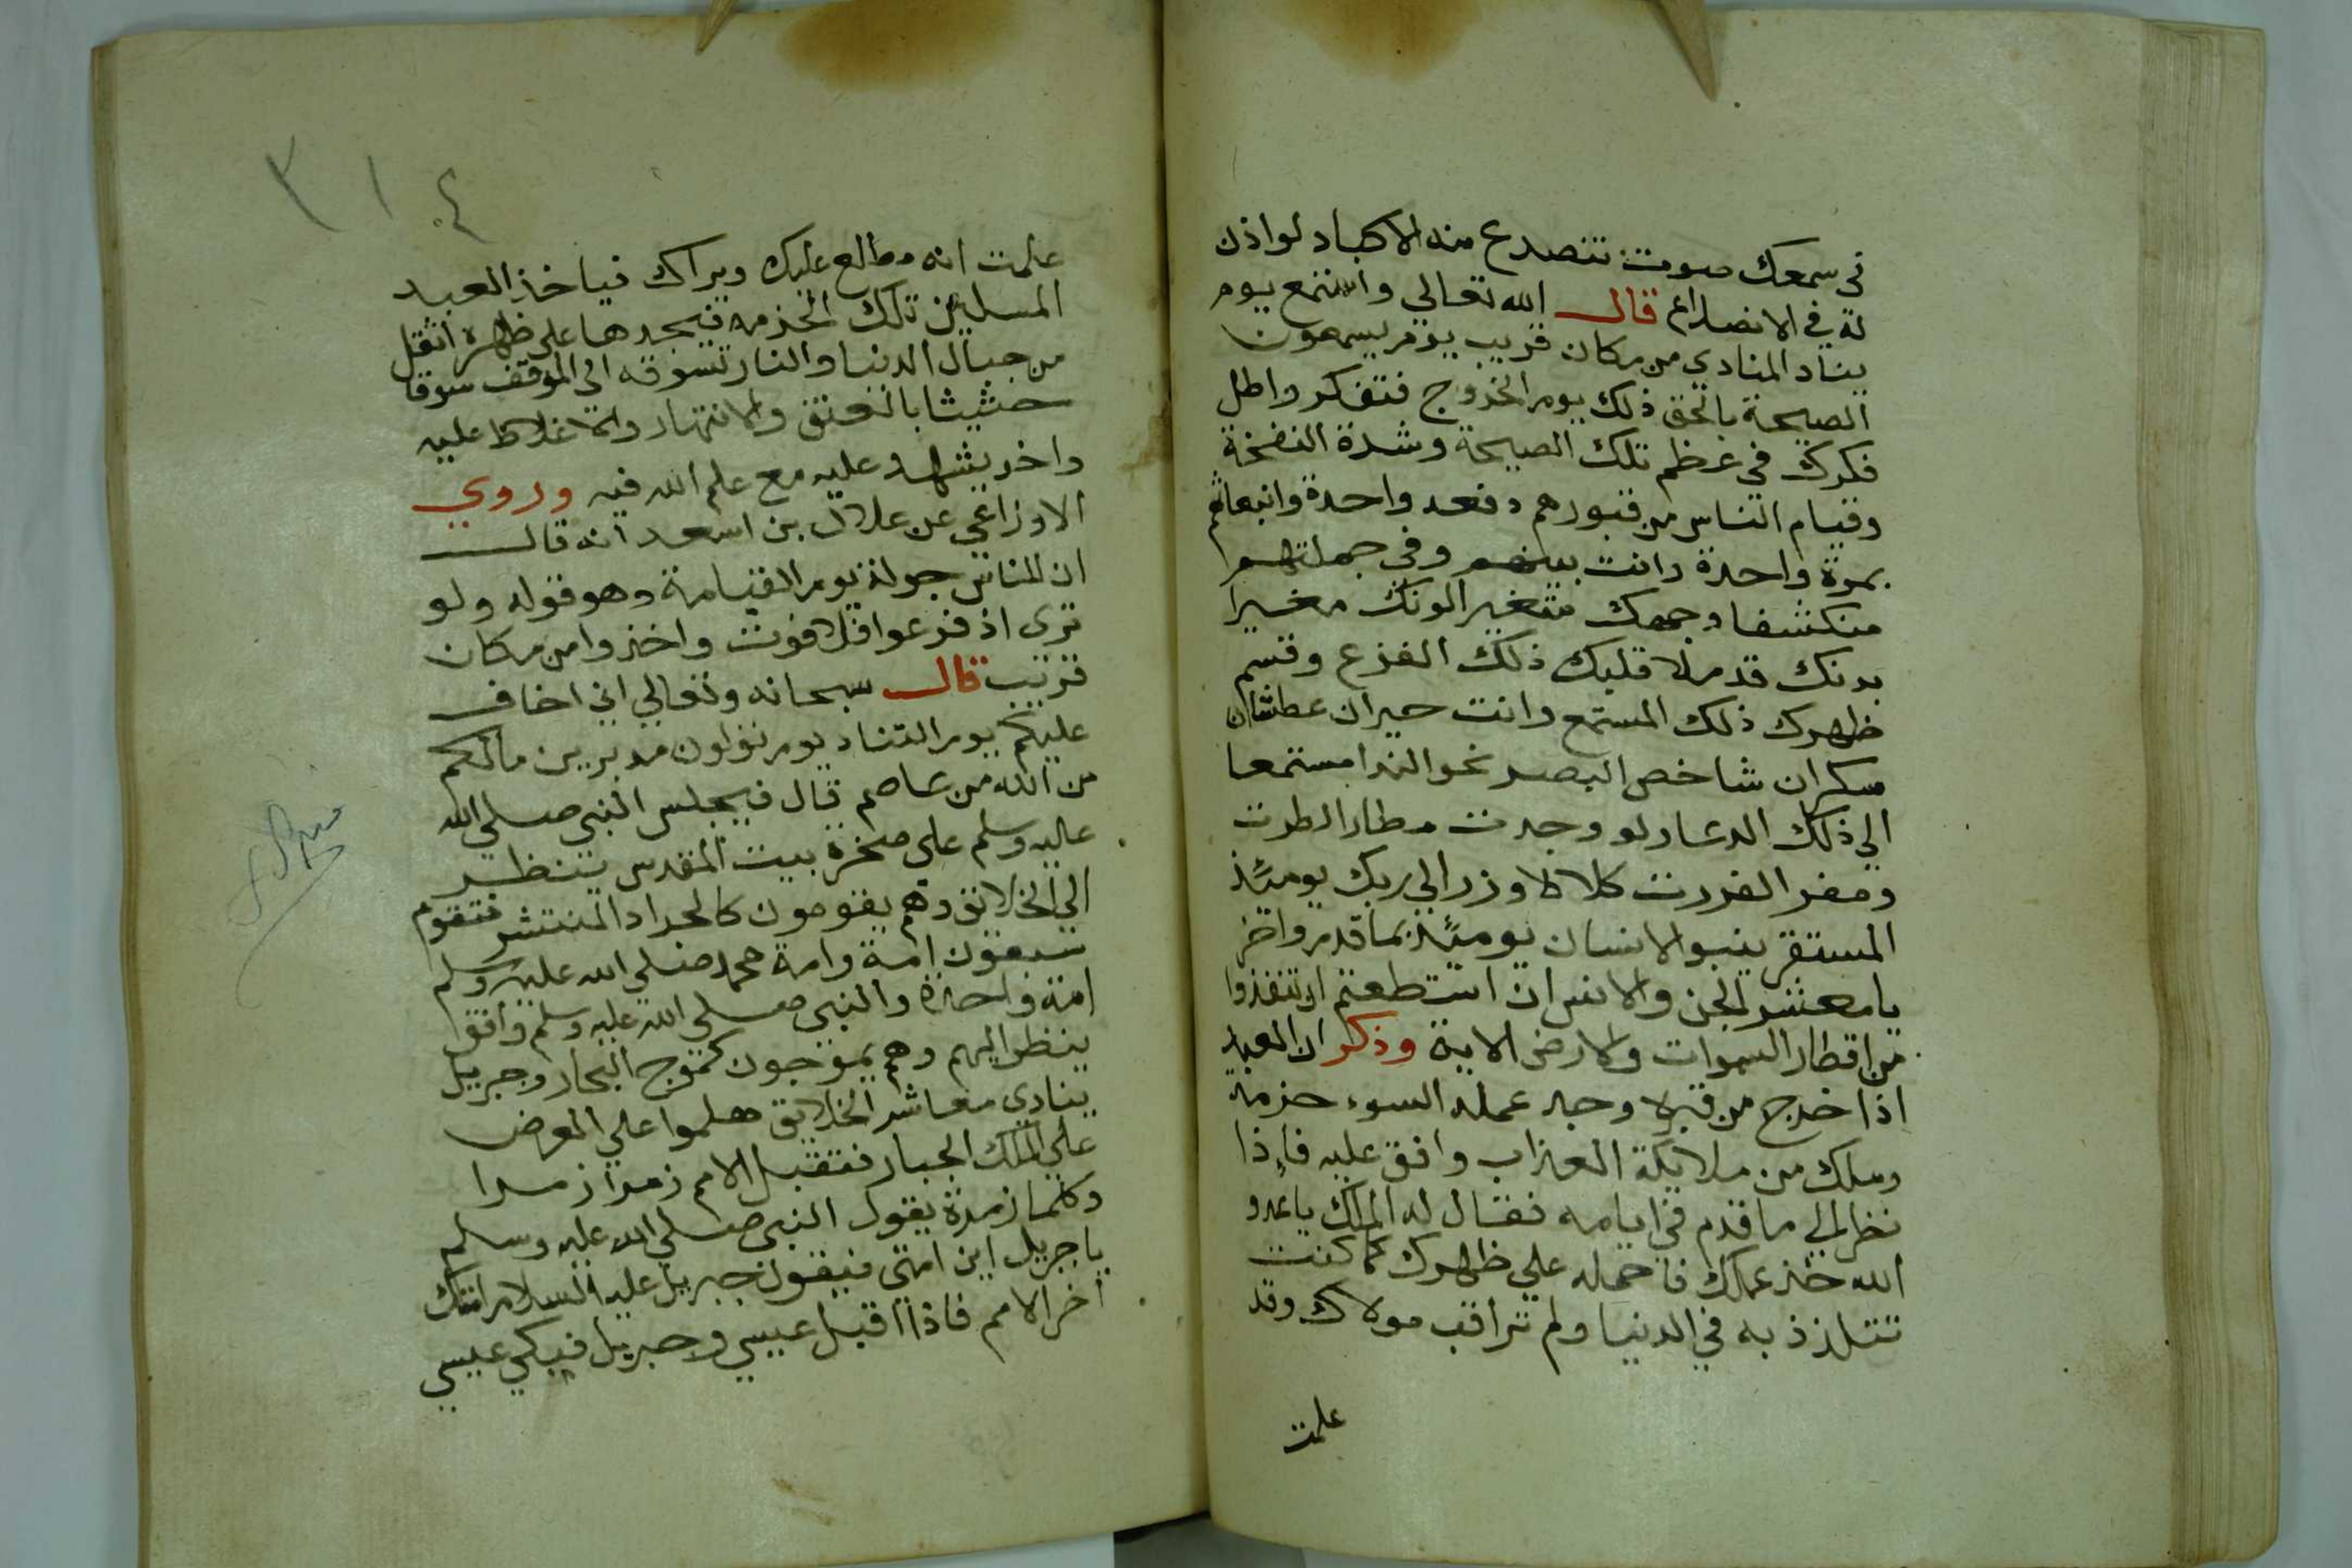 في سمعك صوت تتصدع منه الاكباد لو اذن
له في الانصداع قال الله تعالي واستمع يوم
يناد المنادي من مكان قريب يوم يسمعون
الصيحة بالحق ذلك يوم الخروج فتفكر واطل
فكرك في عظم تلك الصيحة وشدة النفخة
وقيام الناس من قبورهم دفعه واحدة وانبعاثهم
بمرة واحدة وانت بينهم وفي جملتهم
منكشفا وجهك متغير الونك مغبرا
بدنك قد ملا قلبك ذلك الفزع وقسم
ظهرك ذلك المستمع وانت حيران عطشان
سكران شاخص البصر نحو الندا مستمعا
الي ذلك الدعا ولو وجدت مطارا لطرت
ومفرا لفررت كلا لا وزر الي ربك يومئذ
المستقر ينبو الانسان يومئذ بما قدم واخر
يا معشر الجن والانس ان استطعتم ان تنفذوا
من اقطار السموات والارض الاية وذكر ان العبد
اذا خرج من قبره وجد عمله السوء حزمة
وملك من ملايكة العذاب واقف عليه فاذا
نظر الي ما قدم في ايامه فقال له الملك يا عدو
الله خذ عملك فاحمله علي ظهرك كما كنت
تتلذذ به في الدنيا ولم تراقب مولاك وقد
علمت
٣١٤
علمت انه مطالع عليك ويراك فياخذ العبد
المسكين تلك الحزمه فيجدها علي ظهره اثقل
من جبال الدنيا والنار تسوقه الي الموقف سوقا
حثيثا بالعنق والانتهار والاغلاظ عليه
واخر يشهد عليه مع علم الله فيه وروي
الاوزاعي عن علال بن اسعد انه قال
ان للناس جولة يوم القيامة وهو قوله ولو
تري اذ فزعوا فلا فوت واخذوا من مكان
قريب قال سبحانه وتعالي اني اخاف
عليكم يوم التناد يوم تولون مدبرين مالكم
من الله من عاصم قال فيجلس النبي صلي الله
عليه وسلم علي صخرة بيت المقدس ينظر
الي الخلايق وهم يقومون كالجراد المنتشر فتقوم
سبعون امة وامة محمد صلي الله عليه وسلم
امة واحدة والنبي صلي الله عليه وسلم واقفا
ينظر اليهم وهم يموجون كموج البحار وجبريل
ينادي معاشر الخلايق هلموا علي العرض
علي الملك الجبار فتقبل الامم زمرا زمرا
وكلما زمرة يقول النبي صلي الله عليه وسلم
يا جبريل اين امتي فيقول جبريل عليه السلام امتك
اخر الامم فاذا اقبل عيسي وجبريل فيبكي عيسي